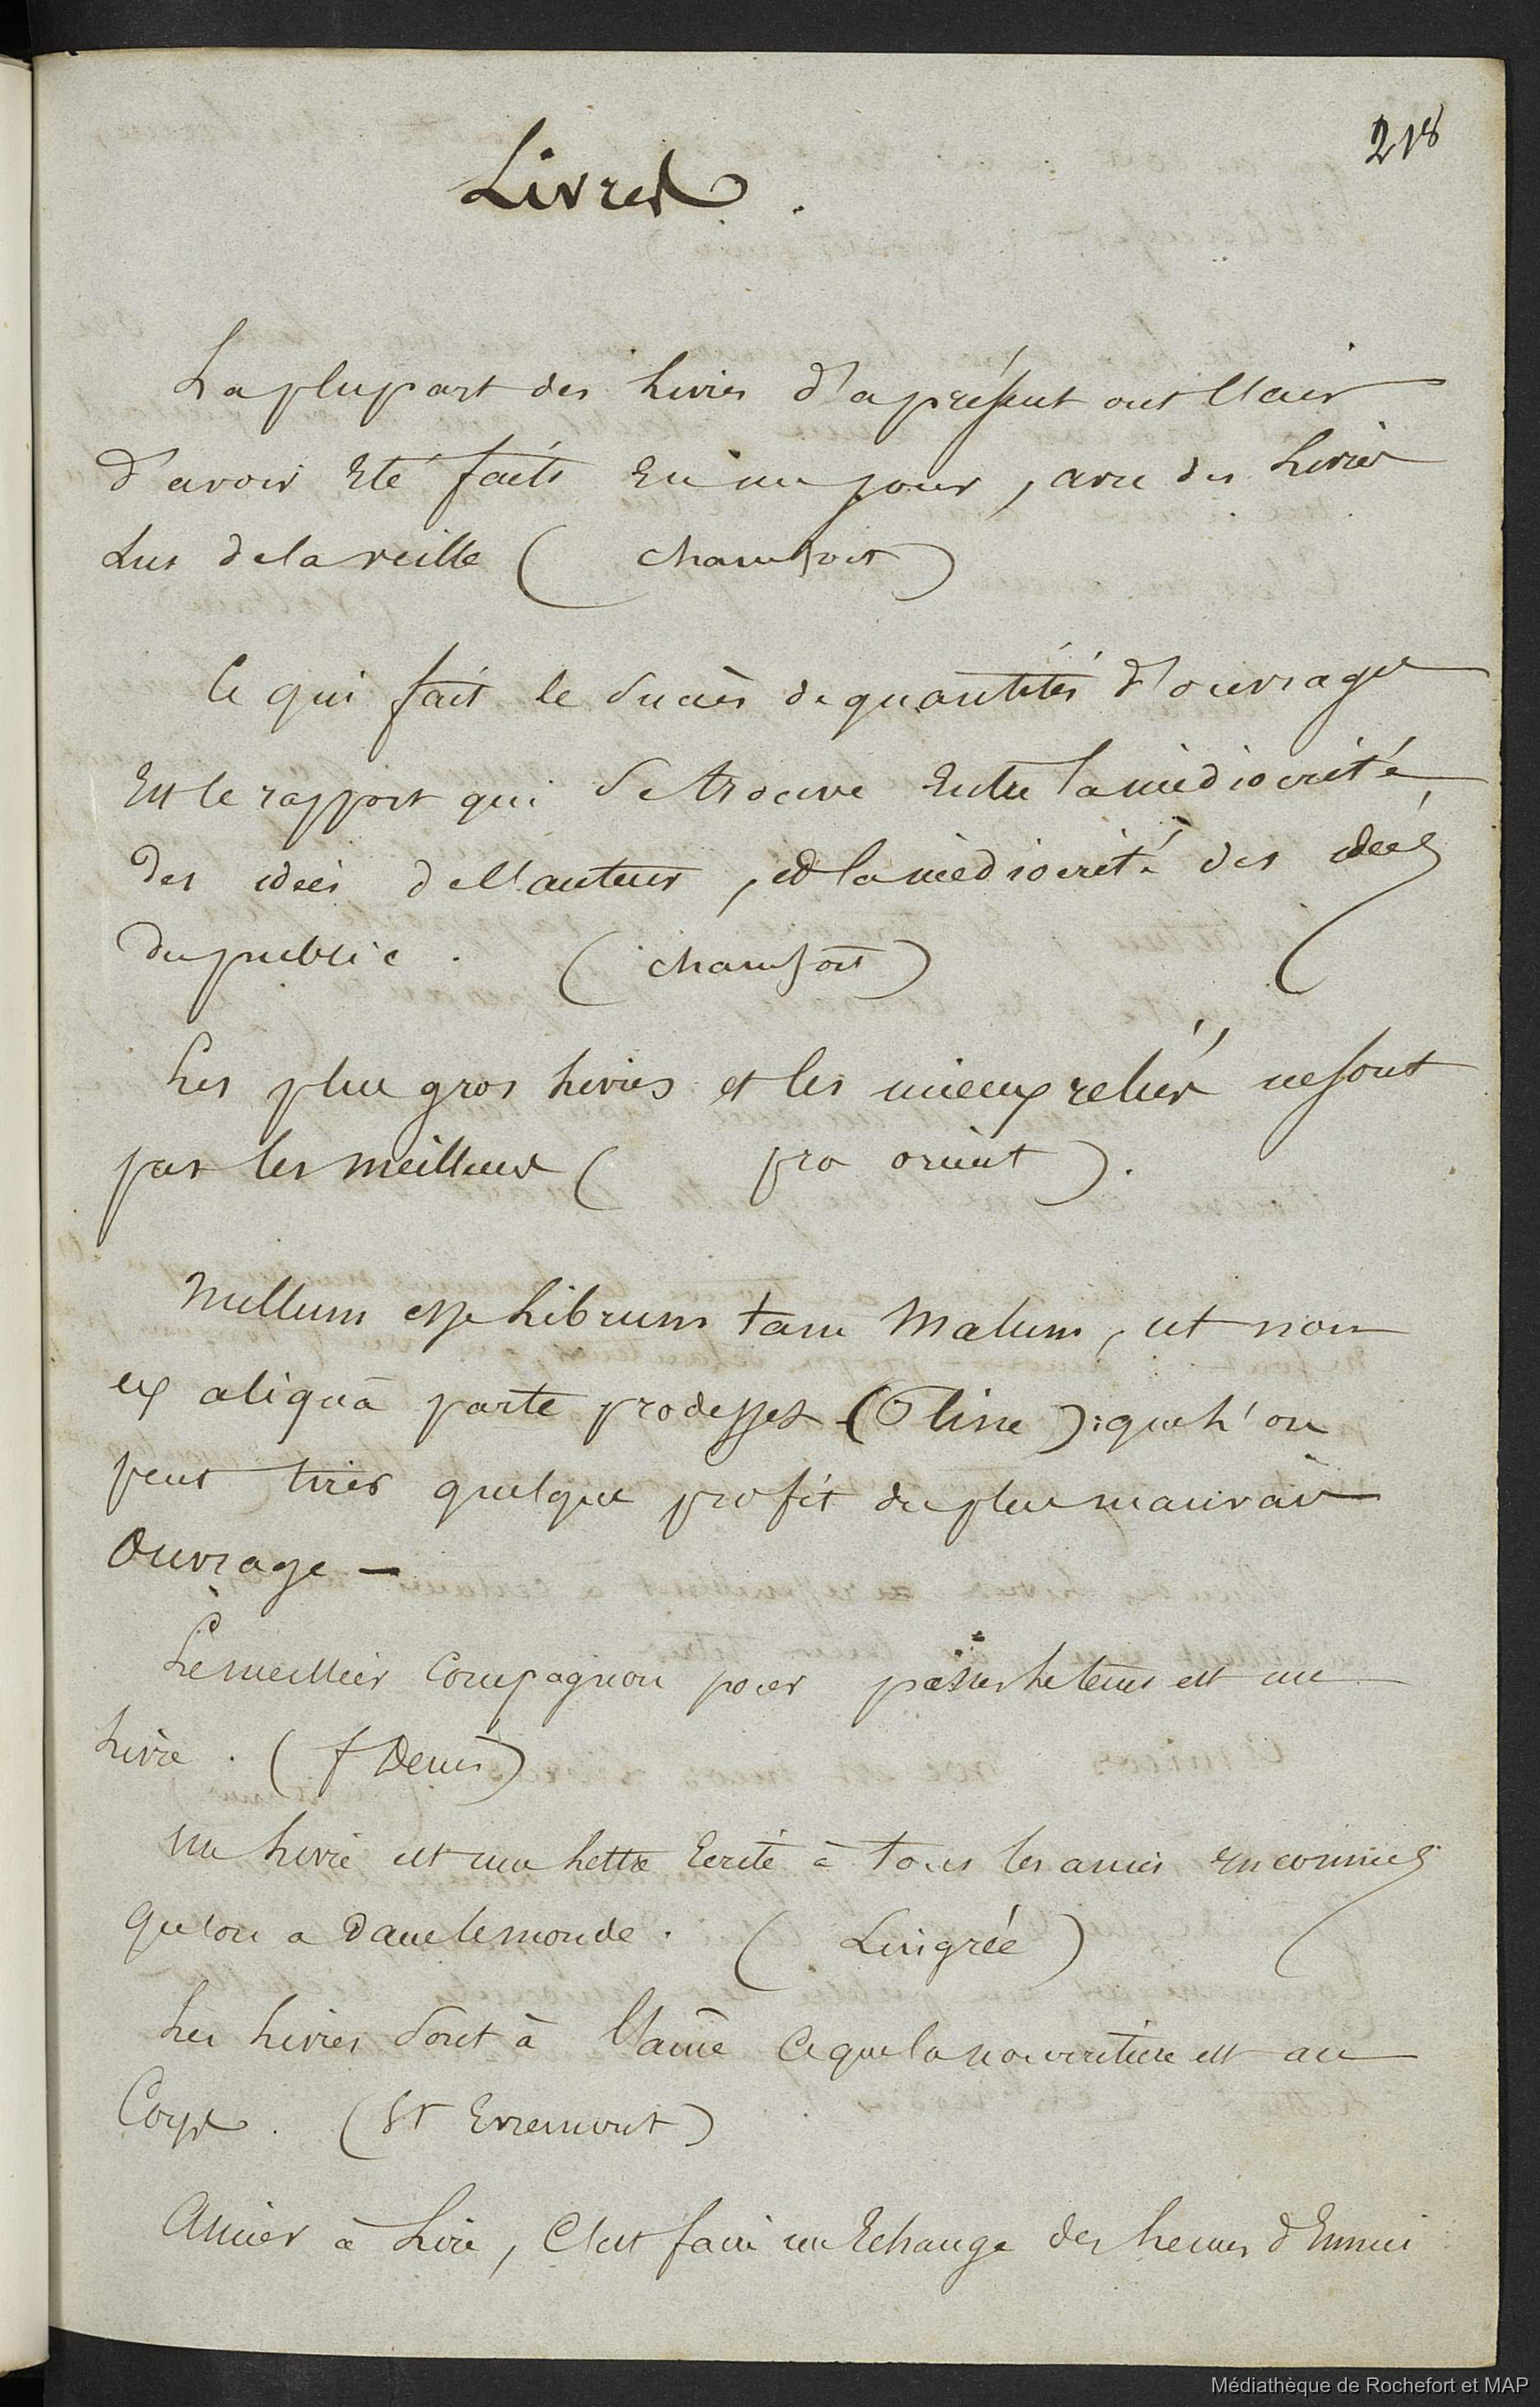 218
Livres.
La plupart des livres d'aprésent ont l'air
d'avoir été faits en un jour, avec des livres
lus de la veille (chamfort)
Ce qui fait le succès de quantités d'ouvrages
est le rapport qui se trouve entre la médiocrité
des idées de l'auteur, et la médiocrité des idées
du public. (chamfort)
Les plus gros livres et les mieux reliés ne sont
pas les meilleurs (pro orient).
Nullum esse librum tam malum, ut non
ex aliquâ parte prodesset (Pline): que l'on
peut tirer quelque profit du plus mauvais
ouvrage —
Le meilleur compagnon pour passer le tems est un
livre. (f Denis)
Un livre est une lettre écrite à tous les amis inconnus
qu'on a dans le monde. (Lingrée)
Les livres sont à l'ame ce que la nourriture est au
Corps. (St Evremont)
Aimer à lire, c'est faire un échange des heures d'ennui
Médiathèque de Rochefort et MAP